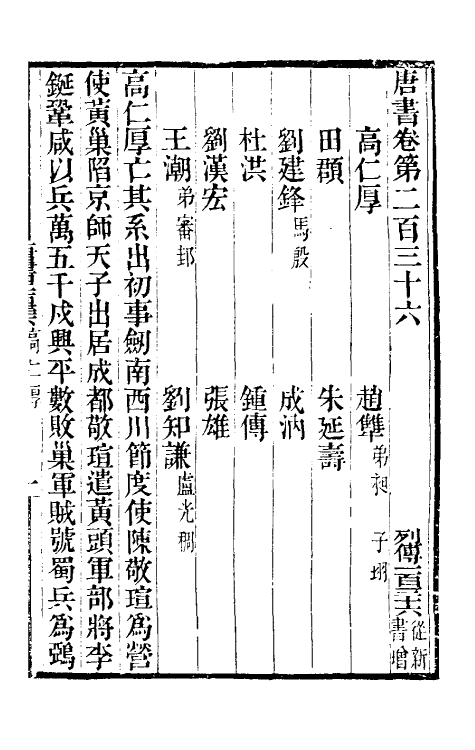 唐書卷第二百三十六 列傳一百三十六 從新書增
高仁厚 趙犨 弟昶 子珝
田頵 朱延壽
劉建鋒 馬殷 成汭
杜洪 鍾傳
劉漢宏 張雄
王潮 弟審邽 劉知謙 盧光稠
高仁厚亡其系出初事劒南西川節度使陳敬瑄爲營
使黃巢陷京師天子出居成都敬瑄遣黃頭軍部將李
鋌鞏咸以兵萬五千戍興平數敗巢軍賊號蜀兵爲鵶